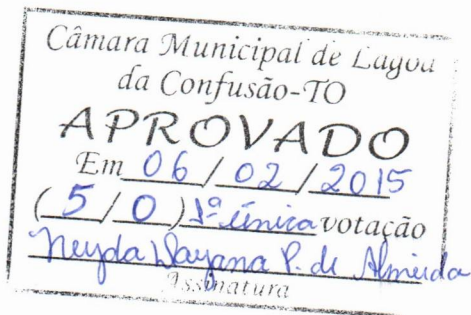 Câmara Municipal de Lagoa
da Confusão-TO
APROVADO
Em 06 / 02 / 2015
( 5 / 0 ) 1ª única votação
Neyda Dayana P. de Almeida
Assinatura